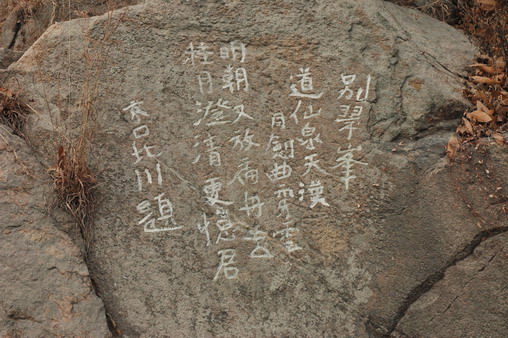 别翠峯
道仙泉天漠
月劍曲雲
明朝又放扁舟去
桂月澄清更憶君
京口北川題